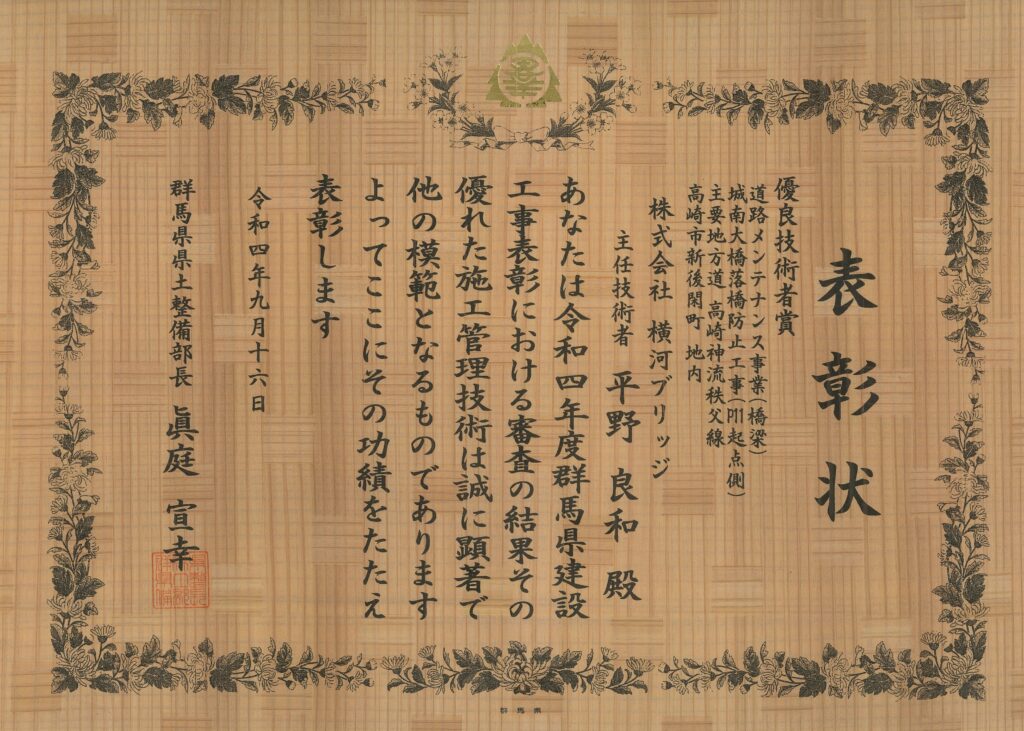 表彰状
優良技術者賞
道路メンテナンス事業(橋梁)
城南大橋落橋防止工事(P11起点側)
主要地方道 高崎神流秩父線
高崎市新後閑町 地内
株式会社 横河ブリッジ
主任技術者 平野 良和 殿
あなたは令和四年度群馬県建設
工事表彰における審査の結果その
優れた施工管理技術は誠に顕著で
他の模範となるものであります
よってここにその功績をたたえ
表彰します
令和四年九月十六日
群馬県県土整備部長 眞庭 宣幸
群馬県